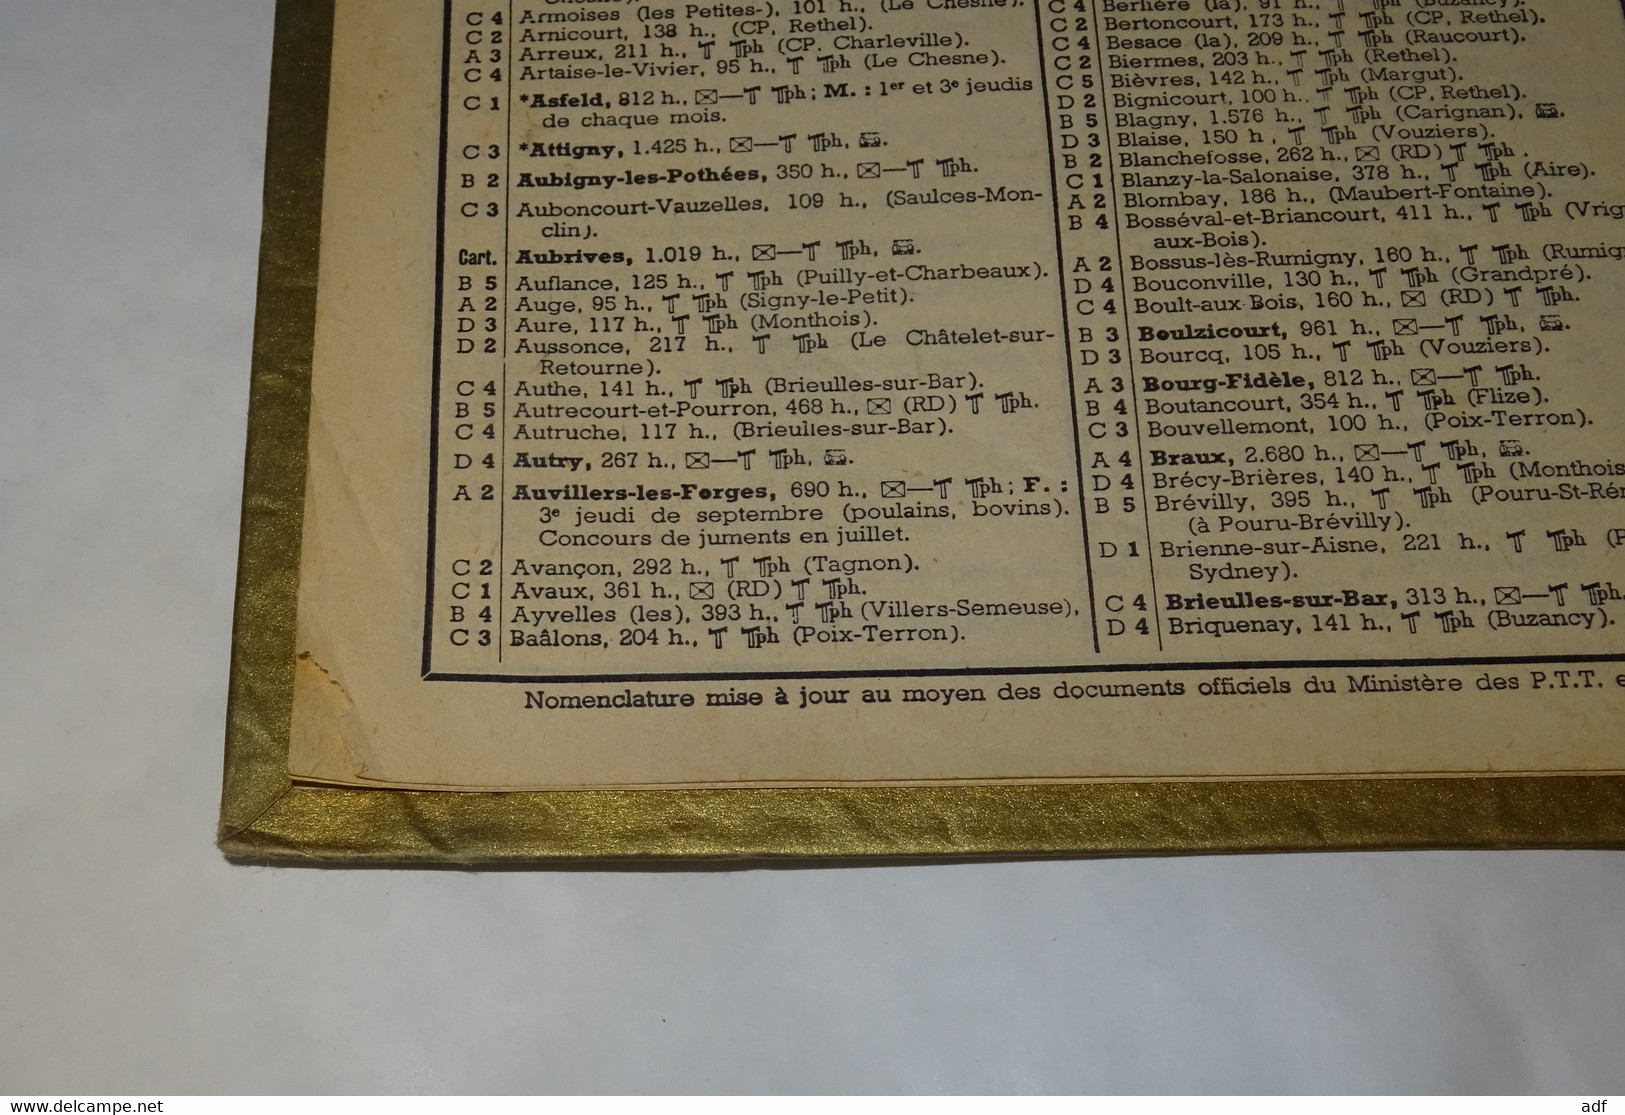 C 4 Armoises (les Petites-), 101 h., (Le Chesne).
C 2 Arnicourt, 138 h., (CP, Rethel).
A 3 Arreux, 211 h., T Tph (CP. Charleville).
C 4 Artaise-le-Vivier, 95 h., T Tph (Le Chesne).
C 1 *Asfeld, 812 h., ✉—T Tph; M. : 1er et 3e jeudis
de chaque mois.
C 3 *Attigny, 1.425 h., ✉—T Tph,
B 2 Aubigny-les-Pothées, 350 h., ✉—T Tph.
C 3 Auboncourt-Vauzelles, 109 h., (Saulces-Mon-
clin).
Cart. Aubrives, 1.019 h., ✉—T Tph,
B 5 Auflance, 125 h., T Tph (Puilly-et-Charbeaux).
A 2 Auge, 95 h., T Tph (Signy-le-Petit).
D 3 Aure, 117 h., T Tph (Monthois).
D 2 Aussonce, 217 h., T Tph (Le Châtelet-sur-
Retourne).
C 4 Authe, 141 h., T Tph (Brieulles-sur-Bar).
B 5 Autrecourt-et-Pourron, 468 h., ✉ (RD) T Tph.
C 4 Autruche, 117 h., (Brieulles-sur-Bar).
D 4 Autry, 267 h., ✉—T Tph,
A 2 Auvillers-les-Forges, 690 h., ✉—T Tph; F. :
3e jeudi de septembre (poulains, bovins).
Concours de juments en juillet.
C 2 Avançon, 292 h., T Tph (Tagnon).
C 1 Avaux, 361 h., ✉ (RD) T Tph.
B 4 Ayvelles (les), 393 h., T Tph (Villers-Semeuse),
C 3 Baâlons, 204 h., T Tph (Poix-Terron).
C 4 Berlière (la), 91 h., T Tph (Buzancy).
C 2 Bertoncourt, 173 h., T Tph (CP, Rethel).
C 4 Besace (la), 209 h., T Tph (Raucourt).
C 2 Biermes, 203 h., T Tph (Rethel).
C 5 Bièvres, 142 h., T Tph (Margut).
D 2 Bignicourt, 100 h., T Tph (CP, Rethel).
B 5 Blagny, 1.576 h., T Tph (Carignan),
D 3 Blaise, 150 h , T Tph (Vouziers).
B 2 Blanchefosse, 262 h., ✉ (RD) T Tph .
C 1 Blanzy-la-Salonaise, 378 h., T Tph (Aire).
A 2 Blombay, 186 h., (Maubert-Fontaine).
B 4 Bosséval-et-Briancourt, 411 h., T Tph (Vrig
aux-Bois).
A 2 Bossus-lès-Rumigny, 160 h., T Tph (Rumig
D 4 Bouconville, 130 h., T Tph (Grandpré).
C 4 Boult-aux-Bois, 160 h., ✉ (RD) T Tph.
B 3 Boulzicourt, 961 h., ✉—T Tph,
D 3 Bourcq, 105 h., T Tph (Vouziers).
A 3 Bourg-Fidèle, 812 h., ✉—T Tph.
B 4 Boutancourt, 354 h., T Tph (Flize).
C 3 Bouvellemont, 100 h., (Poix-Terron).
A 4 Braux, 2.680 h., ✉—T Tph,
D 4 Brécy-Brières, 140 h., T Tph (Monthois
B 5 Brévilly, 395 h., T Tph (Pouru-St-Rém
(à Pouru-Brévilly).
D 1 Brienne-sur-Aisne, 221 h., T Tph (P
Sydney).
C 4 Brieulles-sur-Bar, 313 h., ✉—T Tph,
D 4 Briquenay, 141 h., T Tph (Buzancy).
Nomenclature mise à jour au moyen des documents officiels du Ministère des P.T.T. e
delcampe.net
adf